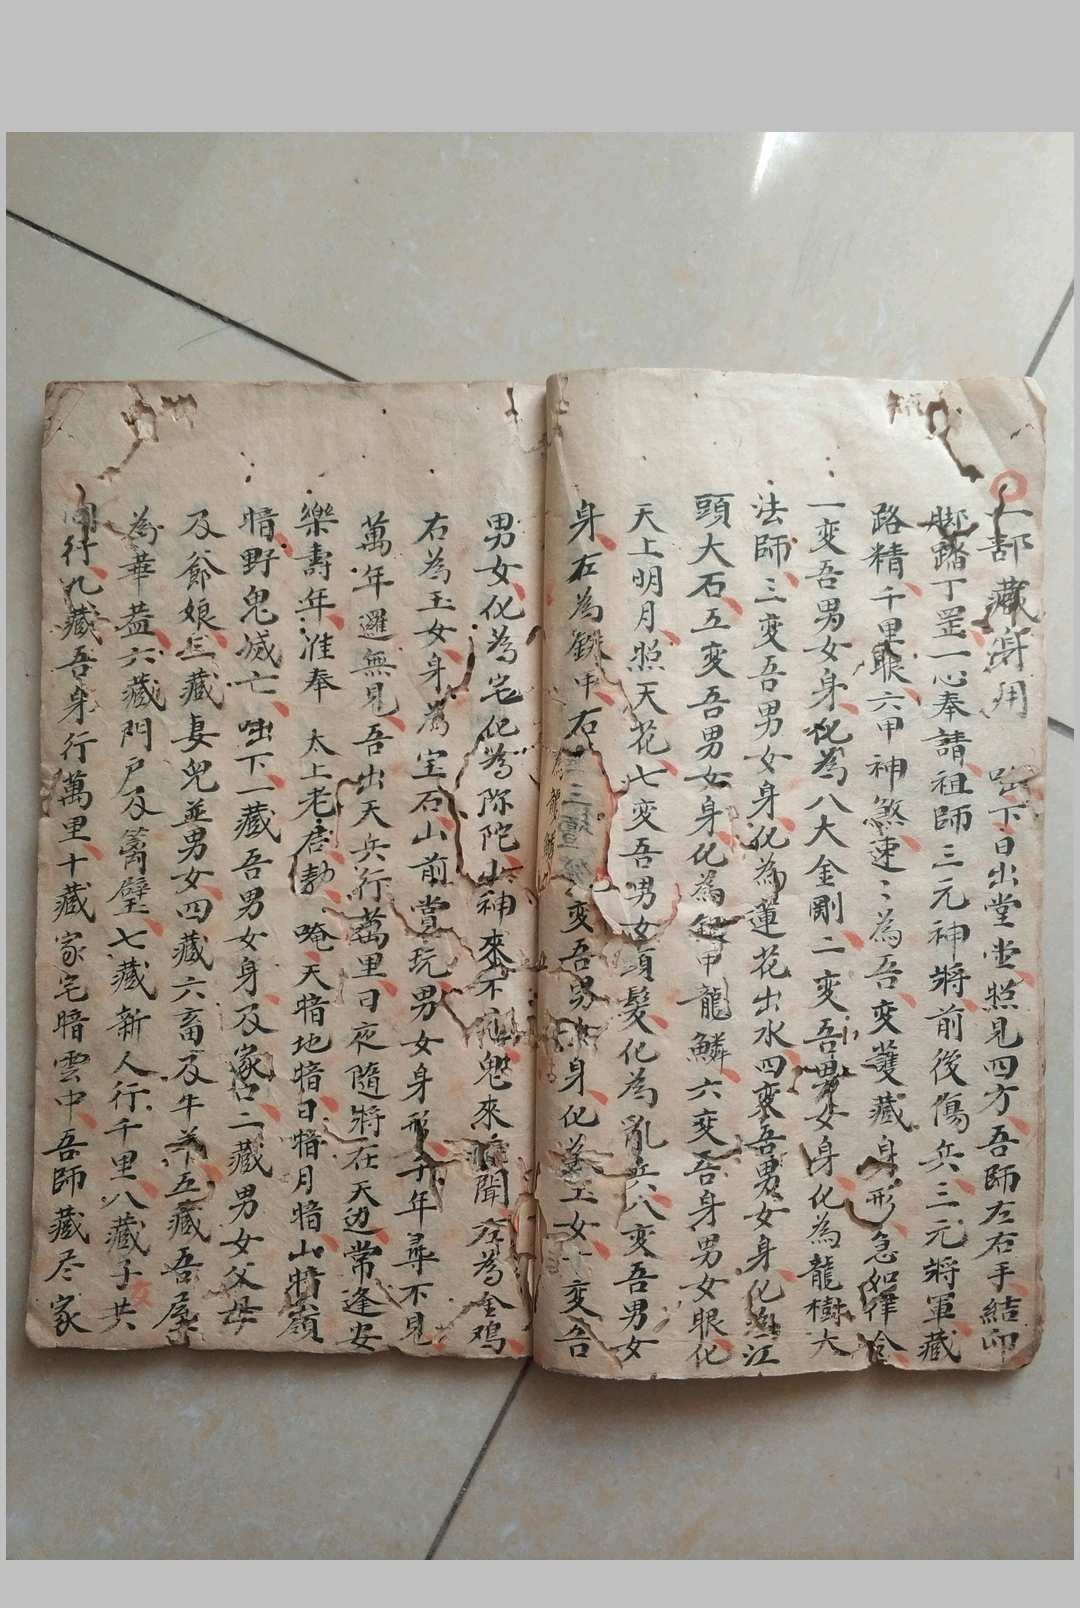 上部藏身用 出下日出堂堂照見四方吾師左右手結印
脚踏丁罡一心奉請祖師三元神將前後傷兵三元將軍藏
路精千里眼六甲神煞速〻為吾变藏身形急如律令
一变吾男女身化為八大金剛二变吾男女身化為龍樹大
法師三变吾男女身化為蓮花出水四变吾男女身化江
頭大石五变吾男女身化為銀甲龍鱗六变吾身男女眼化
天上明月照天花七变吾男女頭髮化為亂兵八变吾男女
身左為銕甲右变吾男身化玉女十变吾
男女化為宅化為弥陀山神來不鬼來聞为金鸡
右為玉女身為宝石山前賞玩男女身形千年尋不見
萬年邏無見吾出天兵行萬里日夜隨將在天边常逢安
樂壽年准奉 太上老君勅 唵天暗地暗日暗月暗山暗嶺
暗野鬼滅亡出下一藏吾男女身及家口二藏男女父母
及爺娘三藏妻兒並男女四藏六畜及牛羊五藏吾屋
為華益六藏門戸及篱壁七藏新人行千里八藏子共
同行九藏吾身行萬里十藏家宅暗雲中吾師藏尽家